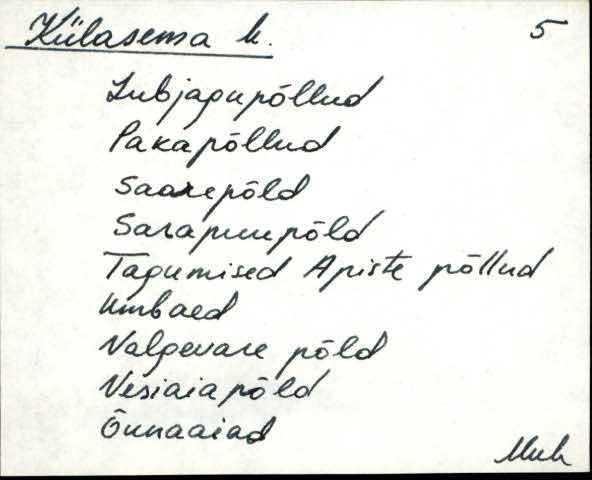 Külasema k. 5
Lubjagupõllud
Pakapõllud
Saarepõld
Sarapuupõld
Tagumised Apiste põllud
Umbaed
Valgevare põld
Vesiaiapõld
Õunaaiad
Muh